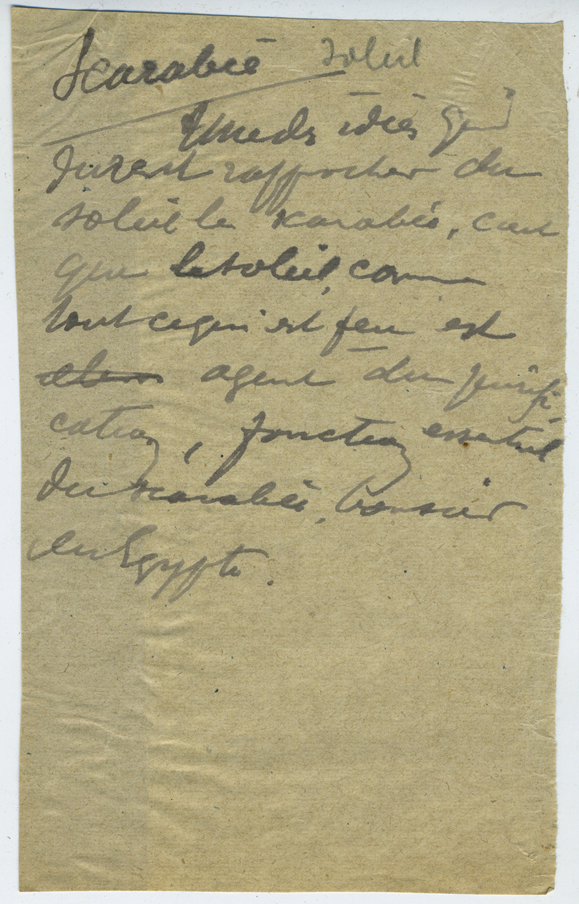 Scarabée Soleil
Une ds idées qui
firent rapprocher du
soleil le scarabée, c'est
que le soleil, comme
tout ce qui est feu est
agent du purifi
cation, fonction essentiel
du scarabée, bousier
en Egypte.